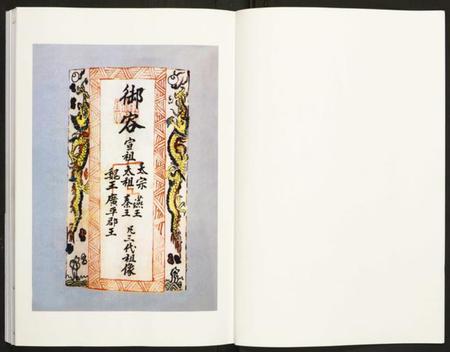 御容
宣祖
太宗 燕王
太祖 秦王
魏王廣平郡王
凡三代祖像